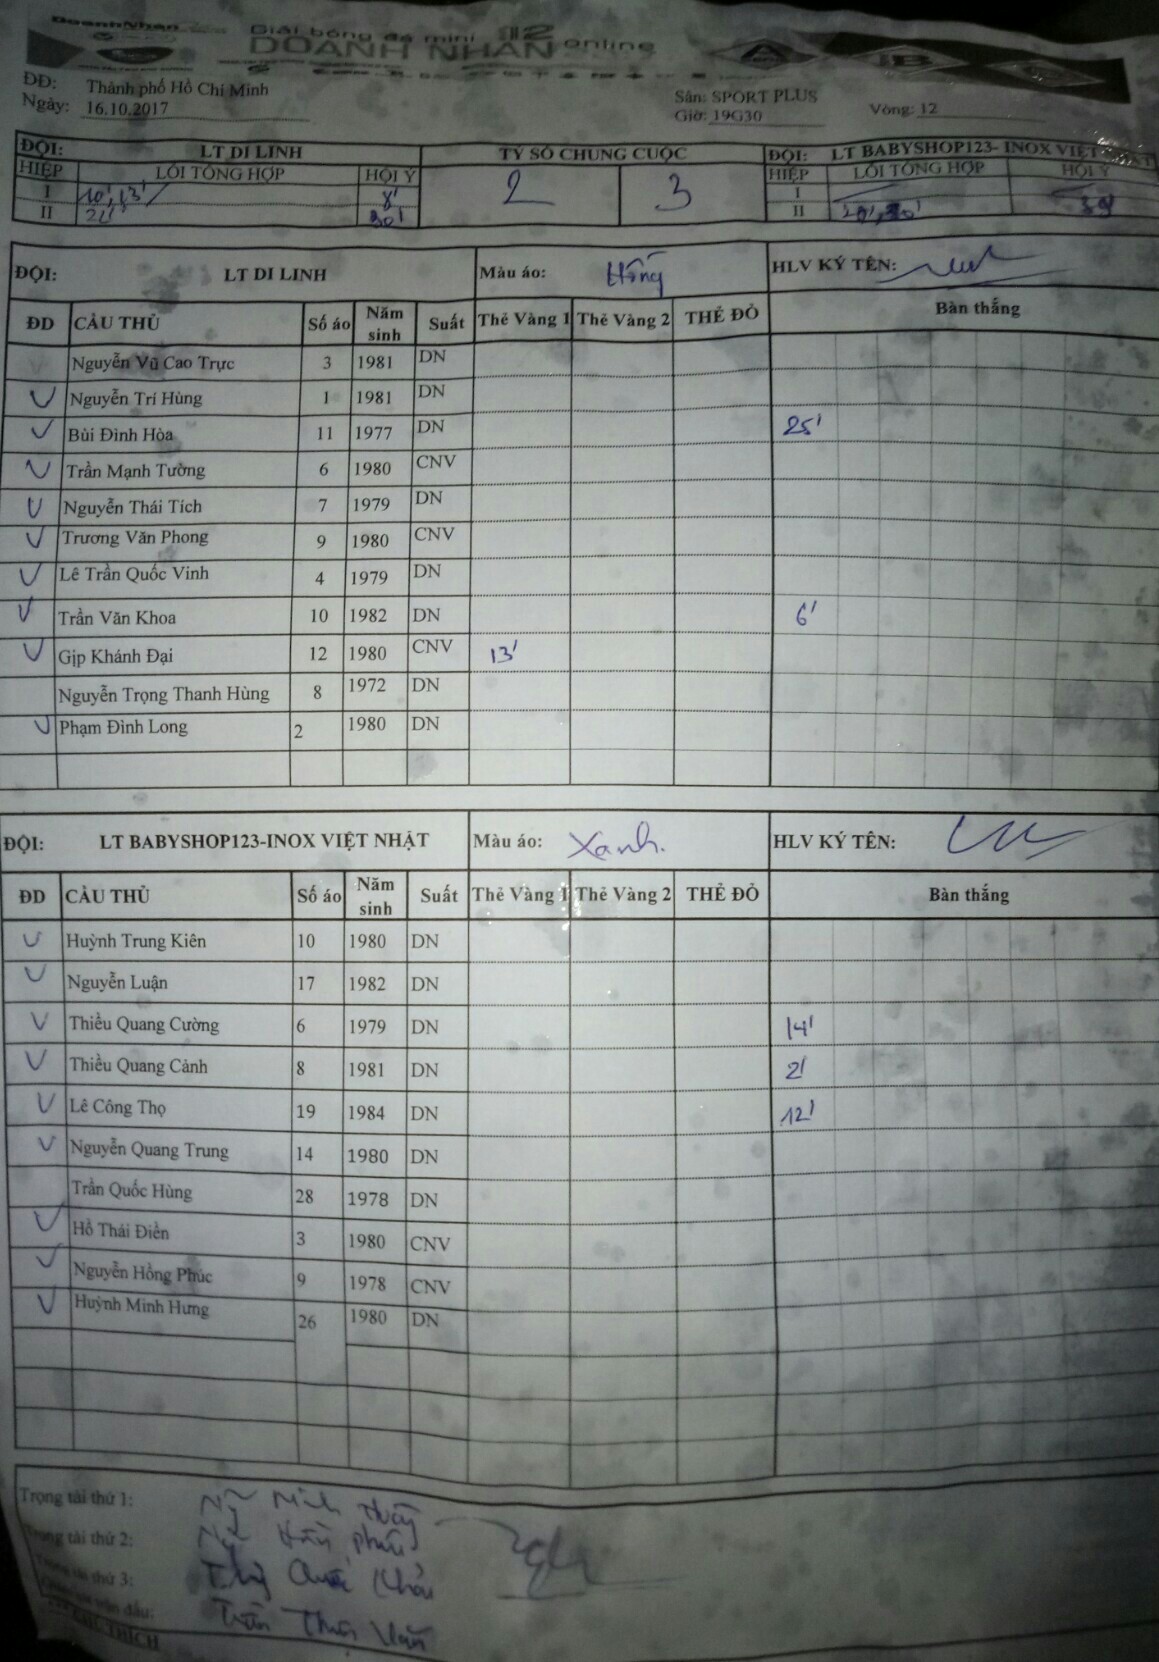 DoanhNhân
Giải bóng đá mini 12
DOANH NHÂN online
ĐĐ: Thành phố Hồ Chí Minh
Ngày: 16.10.2017
Sân: SPORT PLUS
Giờ: 19G30
Vòng: 12
ĐỘI: LT DI LINH TỶ SỐ CHUNG CUỘC ĐỘI: LT BABYSHOP123- INOX VIỆT
HIỆP LỖI TỔNG HỢP HỘI Ý 2 3 HIỆP LỖI TỔNG HỢP HỘI Ý
I 10', 13' 8' I
II 21' 30' II 39'
ĐỘI: LT DI LINH Màu áo: Hồng HLV KÝ TÊN:
ĐD CẦU THỦ Số áo Năm sinh Suất Thẻ Vàng 1 Thẻ Vàng 2 THẺ ĐỎ Bàn thắng
Nguyễn Vũ Cao Trực 3 1981 DN
V Nguyễn Trí Hùng 1 1981 DN
V Bùi Đình Hòa 11 1977 DN 25'
V Trần Mạnh Tường 6 1980 CNV
V Nguyễn Thái Tích 7 1979 DN
V Trương Văn Phong 9 1980 CNV
V Lê Trần Quốc Vinh 4 1979 DN
V Trần Văn Khoa 10 1982 DN 6'
V Gịp Khánh Đại 12 1980 CNV 13'
Nguyễn Trọng Thanh Hùng 8 1972 DN
V Phạm Đình Long 2 1980 DN
ĐỘI: LT BABYSHOP123-INOX VIỆT NHẬT Màu áo: Xanh. HLV KÝ TÊN:
ĐD CẦU THỦ Số áo Năm sinh Suất Thẻ Vàng 1 Thẻ Vàng 2 THẺ ĐỎ Bàn thắng
V Huỳnh Trung Kiên 10 1980 DN
V Nguyễn Luận 17 1982 DN
V Thiều Quang Cường 6 1979 DN 14'
V Thiều Quang Cảnh 8 1981 DN 2'
V Lê Công Thọ 19 1984 DN 12'
V Nguyễn Quang Trung 14 1980 DN
Trần Quốc Hùng 28 1978 DN
V Hồ Thái Điền 3 1980 CNV
V Nguyễn Hồng Phúc 9 1978 CNV
V Huỳnh Minh Hưng 26 1980 DN
Trọng tài thứ 1: Ng Minh
Trọng tài thứ 2: Ng
tài thứ 3: Quốc
trận đấu: Trần